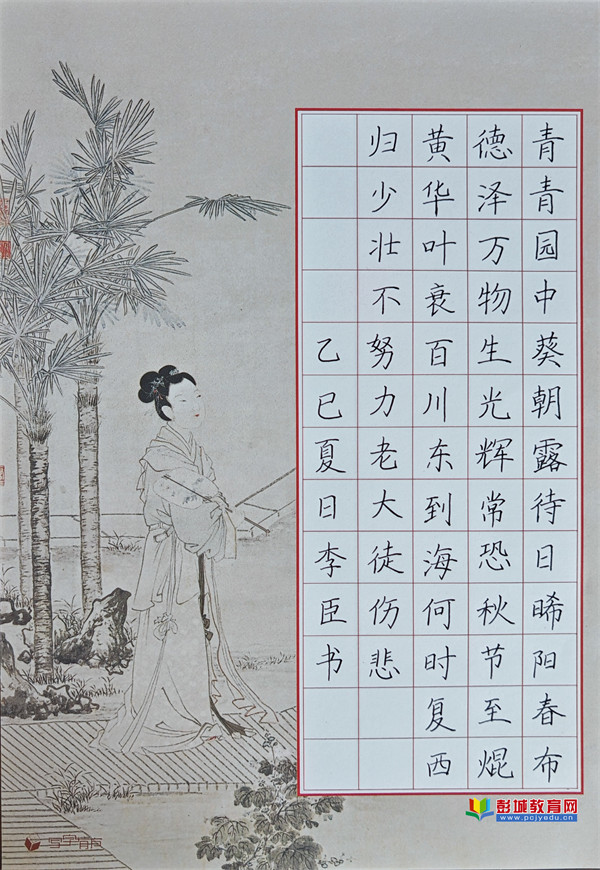 青青园中葵朝露待日晞阳春布
德泽万物生光辉常恐秋节至焜
黄华叶衰百川东到海何时复西
归少壮不努力老大徒伤悲
乙巳夏日李臣书
彭城教育网
www.pcjyedu.cn